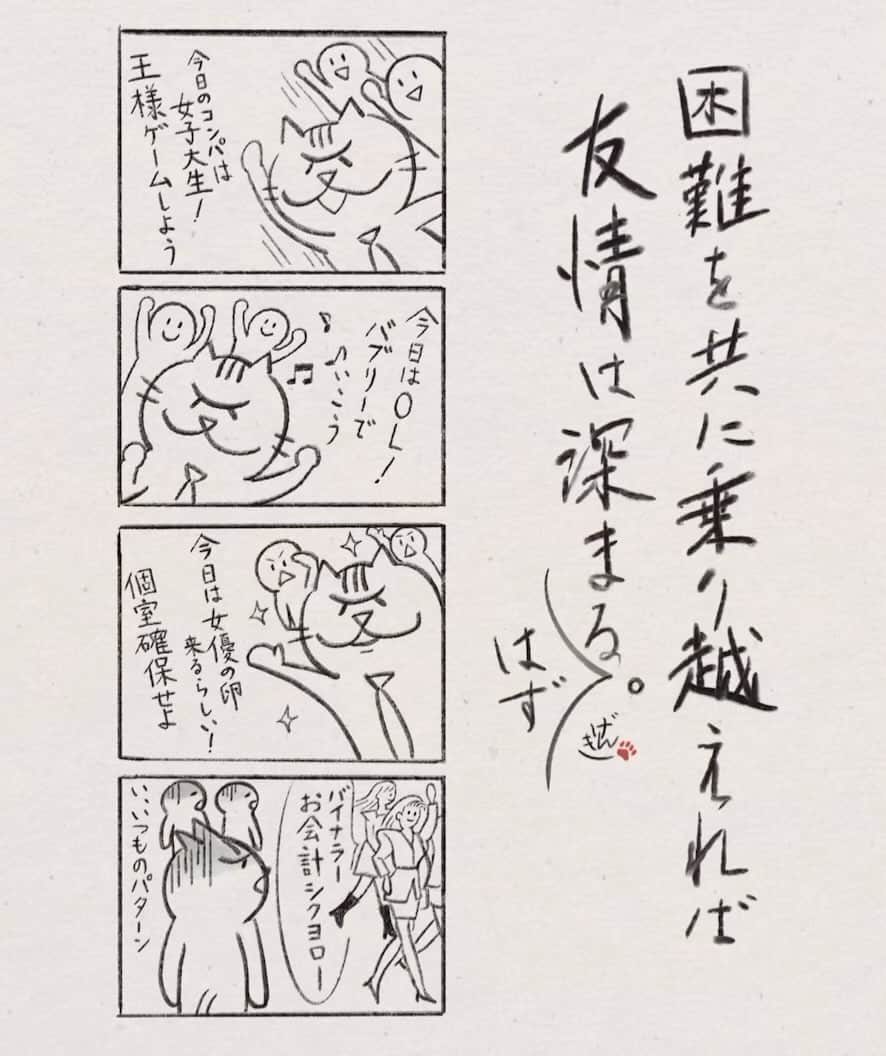 困難を共に乗り越えれば
友情は深まる。
はず
ばんきし
今日のコンパは
女子大生！
王様ゲームしよう
今日はOL！
バブリーで
いこう
今日は女優の卵
来るらしい！
個室確保せよ
バイナラー
お会計シクヨロー
い、いつものパターン